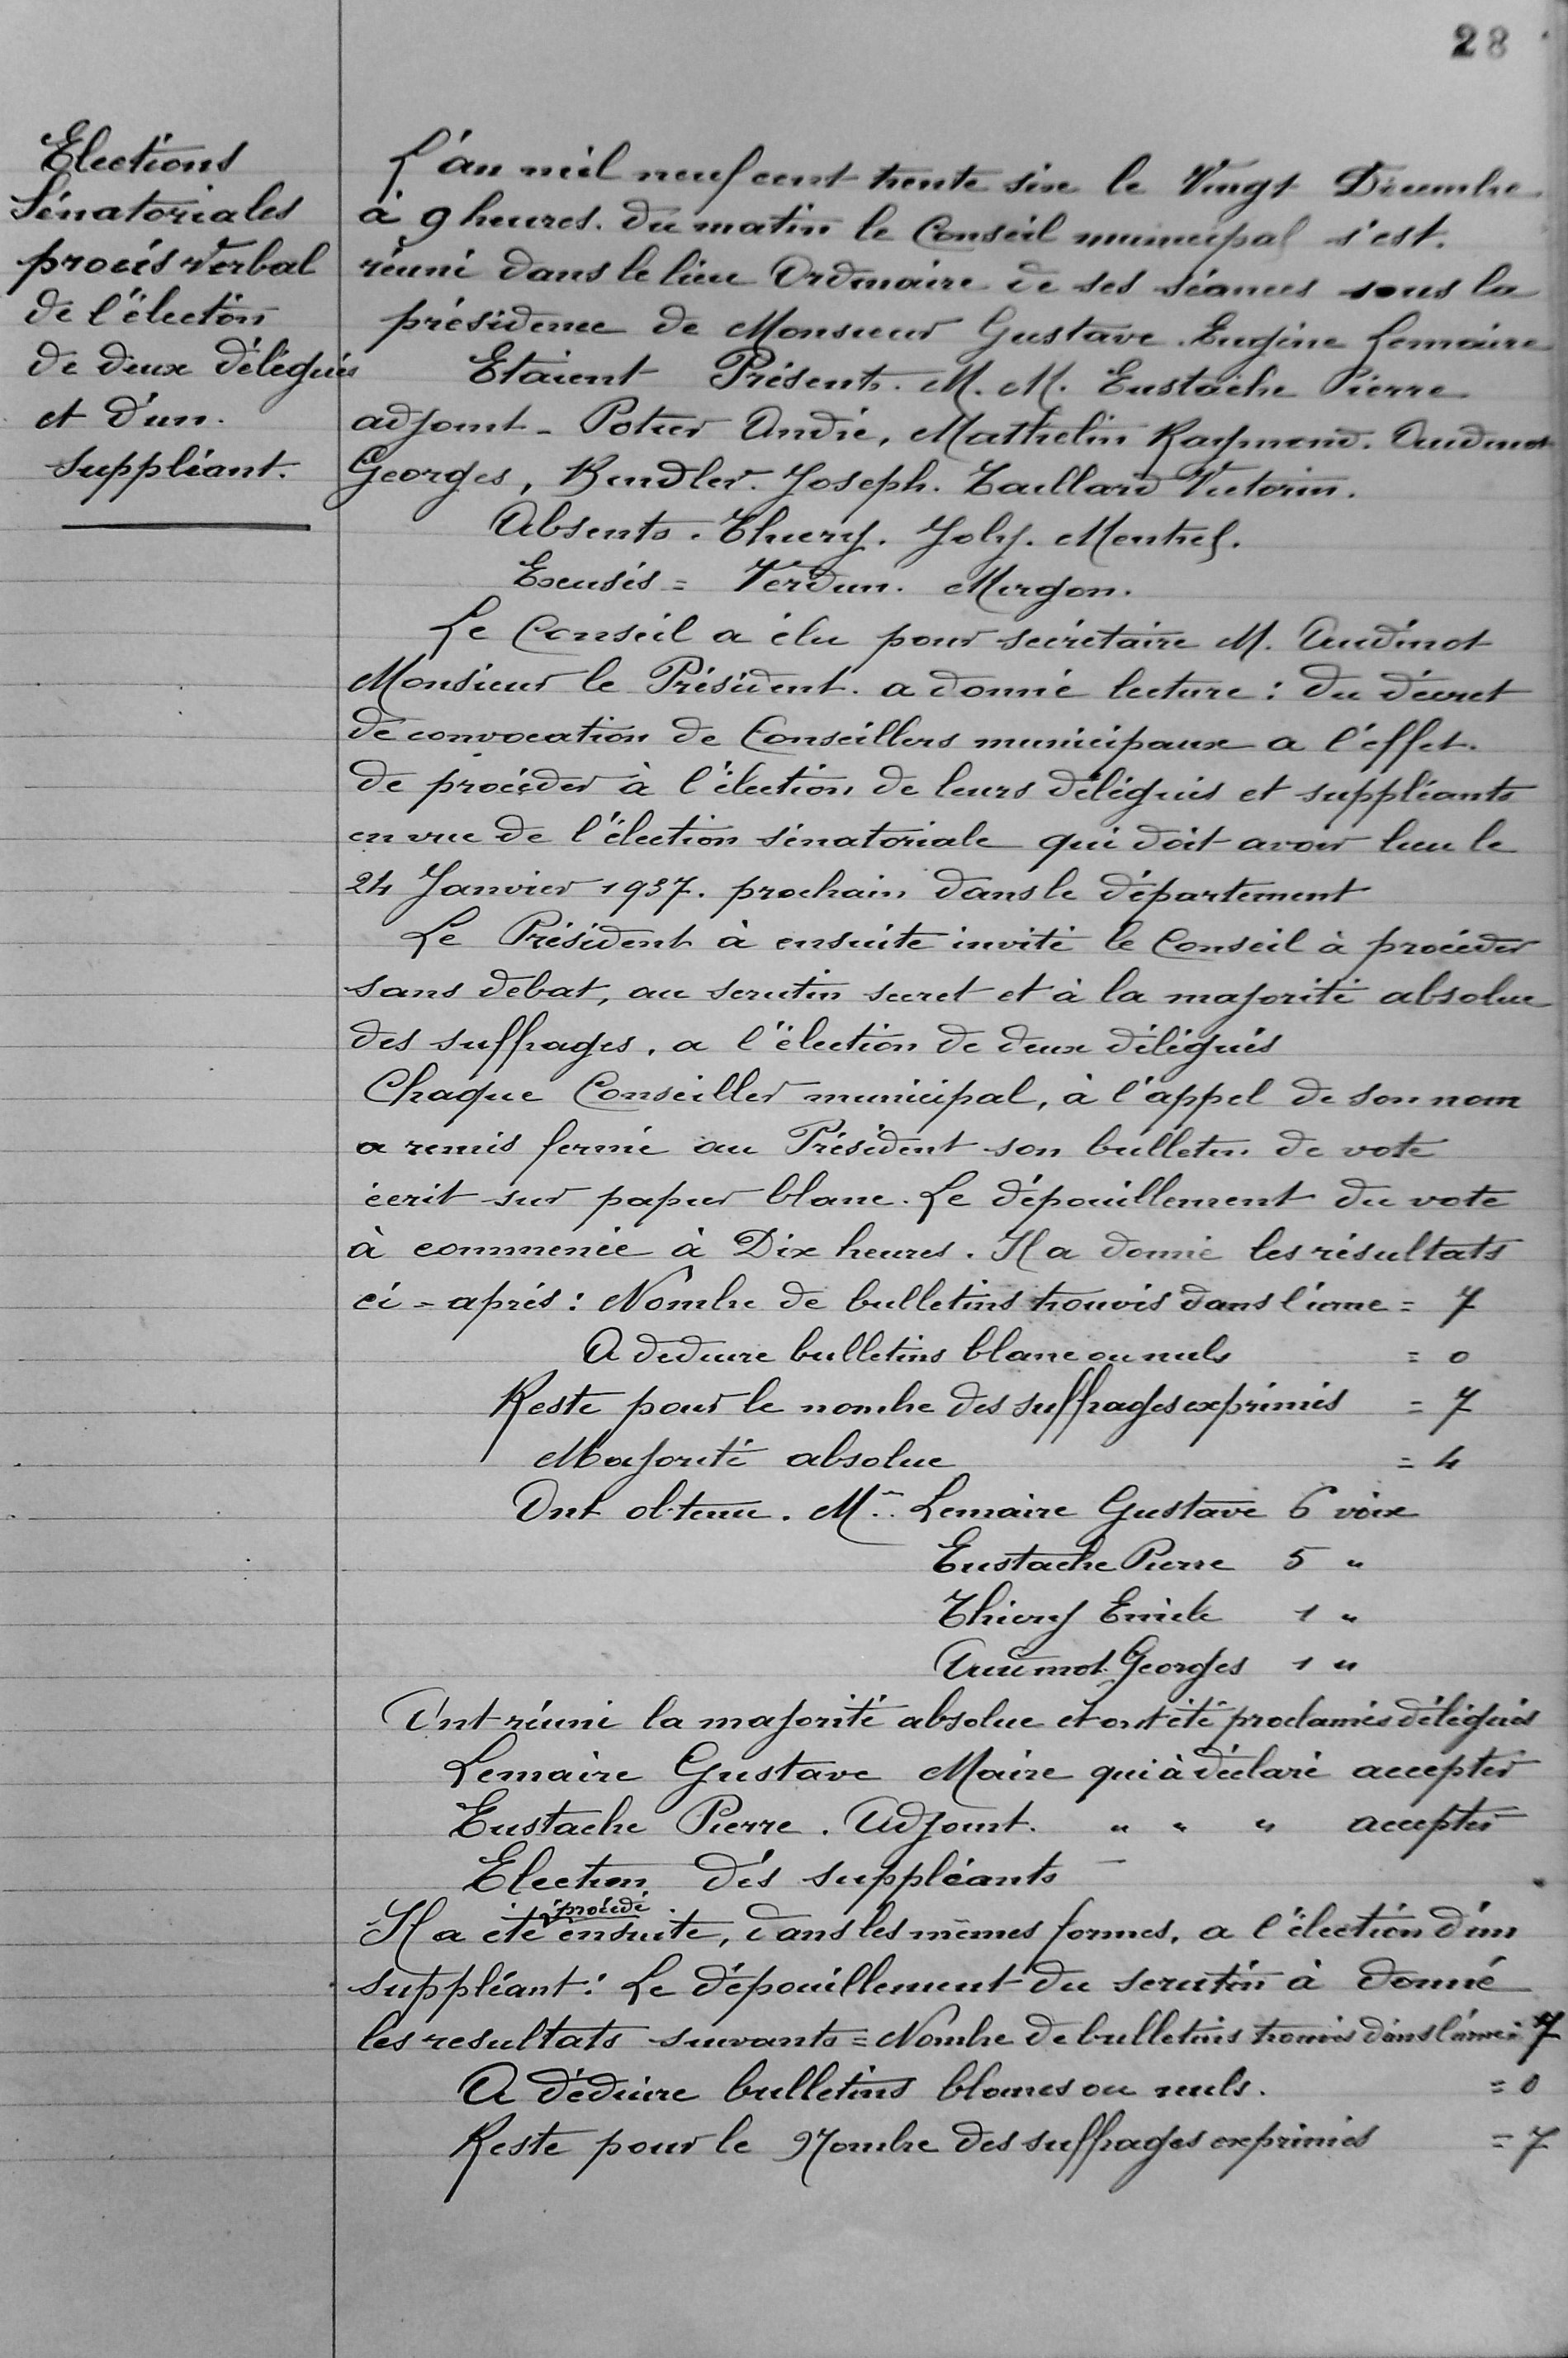 28
Elections
Sénatoriales
procés Verbal
de l'élection
de deux délégués
et d'un.
suppléant.
L'an mil neuf cent trente six le Vingt Décembre
à 9 heures. du matin le Conseil municipal s'est.
réuni dans le lieu Ordinaire de ses séances sous la
présidence de Monsieur Gustave. Eugène Lemaire
Etaient Présents. M. M. Eustache Pierre
adjoint - Potier André, Mathelin Raymond. Audinot
Georges, Kindler. Joseph. Taillard Victorin.
Absents. Thiery. Joly. Mentrel.
Excusés = Verdun. Morgon.
Le Conseil a élu pour secrétaire M. Audinot
Monsieur le Président. a donné lecture : du décret
de convocation de Conseillers municipaux a l'effet.
de procéder à l'élection de leurs délégués et suppléants
en vue de l'élection sénatoriale qui doit avoir lieu le
24 Janvier 1937. prochain dans le département
Le Président à ensuite invité le Conseil à procéder
sans debat, au scrutin secret et à la majorité absolue
des suffrages. a l'élection de deux délégués
Chaque Conseiller municipal, à l'appel de son nom
a remis fermé au Président son bulletin de vote
écrit sur papier blanc. Le dépouillement du vote
à commencé à Dix heures. Il a donné les résultats
ci = aprés : Nombre de bulletins trouvés dans l'urne = 7
A deduire bulletins blanc ou nuls = 0
Reste pour le nombre des suffrages exprimés = 7
Majorité absolue = 4
Ont obtenu. Mr. Lemaire Gustave 6 voix
Eustache Pierre 5 "
Thiery Emile 1 "
Audinot Georges 1 "
Ont réuni la majorité absolue et ont été proclamés délégués
Lemaire Gustave Maire qui à déclaré accepter
Eustache Pierre. Adjoint. " " " accepter
Election dés suppléants
procédé
Il a été ensuite, dans les mêmes formes, a l'élection d'un
suppléant : Le dépouillement du scrutin à donné
les resultats suivants = Nombre de bulletins trouvés dans l'urne = 7
A déduire bulletins blancs ou nuls. = 0
Reste pour le Nombre des suffrages exprimés = 7